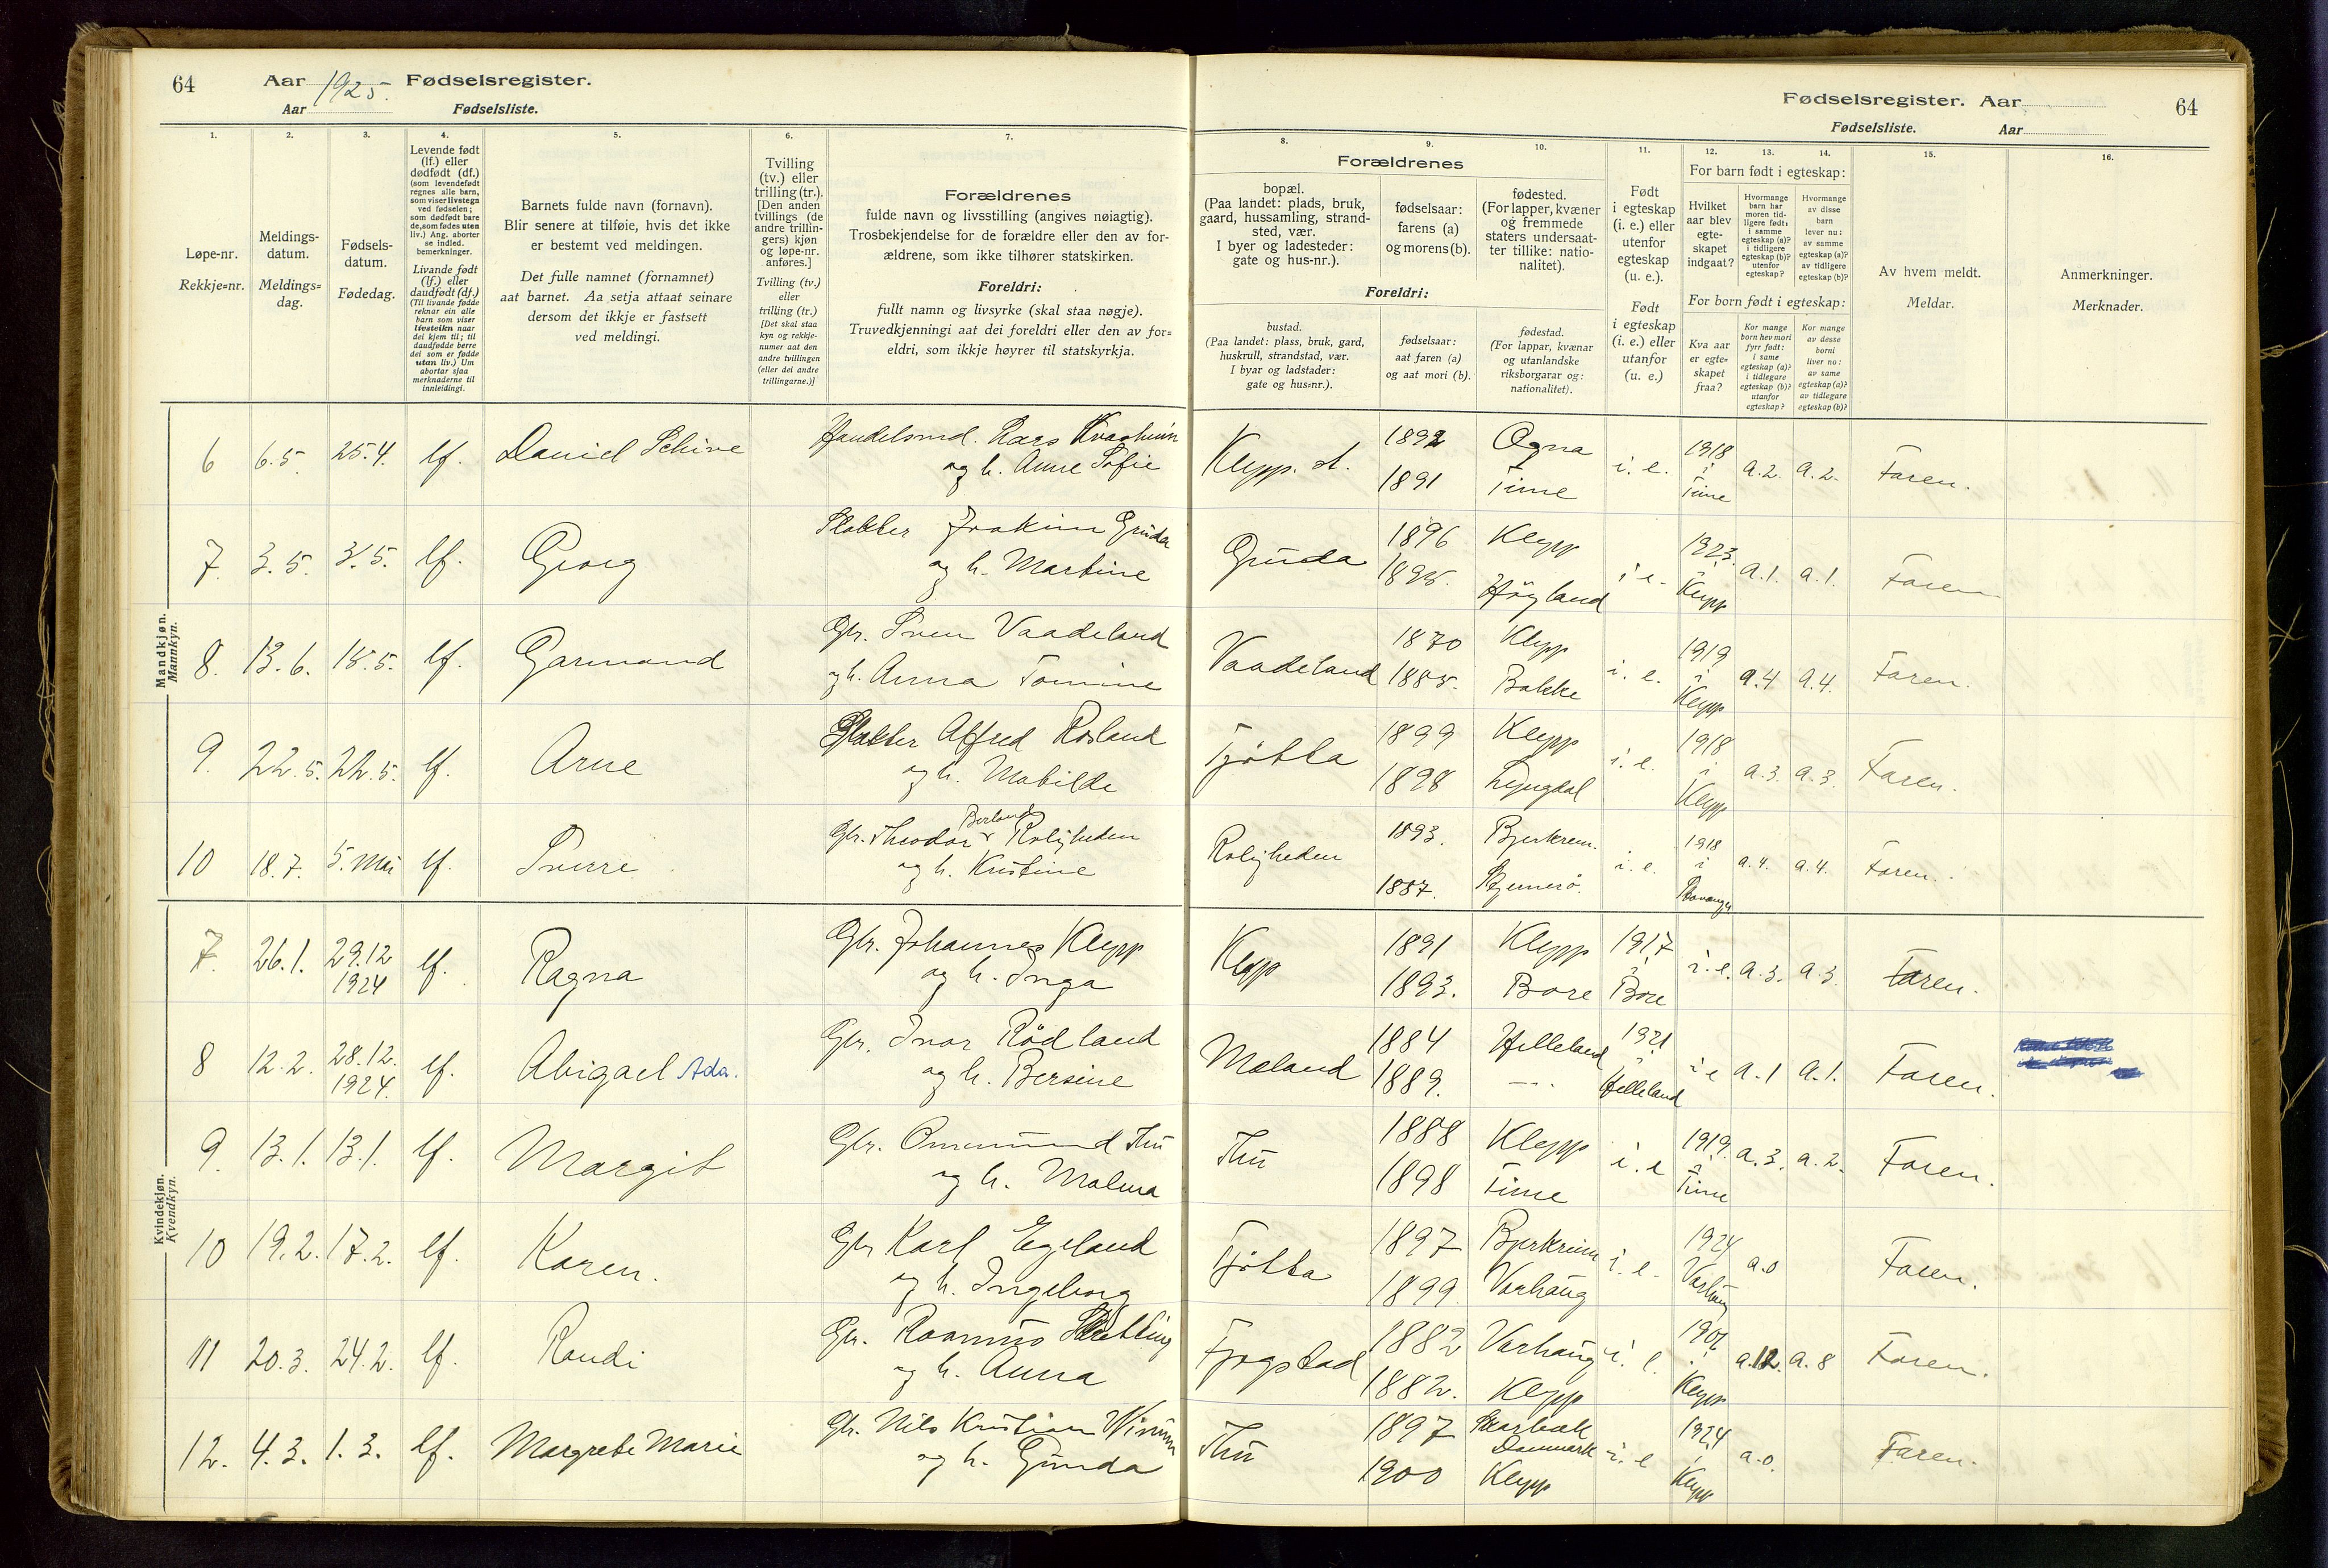 64 Aar 1925. Fødselsregister.
Aar Fødselsliste.
Fødselsregister. Aar 64
Fødselsliste. Aar
1. 2. 3. 4. 5. 6. 7. 8. 9. 10. 11. 12. 13. 14. 15. 16.
Løpe-nr.
Rekkje=nr.
Meldings-
datum.
Meldings=
dag.
Fødsels-
datum.
Fødedag.
Levende født
(lf.) eller
dødfødt (df.)
(som levendefødt
regnes alle barn,
som viser livstegn
ved fødselen;
som dødfødt bare
de, som fødes uten
liv.) Ang. aborter
se indled.
bemerkninger.
Livande født
(lf.) eller
daudfødt (df.)
(Til livande fødde
reknar ein alle
barn som viser
livsteikn naar
dei kjem til; til
daudfødde berre
dei som er fødde
utan liv.) Um
abortar sjaa
merknaderne til
innleidingi.
Barnets fulde navn (fornavn).
Blir senere at tilføie, hvis det ikke
er bestemt ved meldingen.
Det fulle namnet (fornamnet)
aat barnet. Aa setja attaat seinare
dersom det ikkje er fastsett
ved meldingi.
Tvilling
(tv.) eller
trilling (tr.).
[Den anden
tvillings (de
andre trillin-
gers) kjøn
og løpe-nr.
anføres.]
Tvilling (tv.)
eller
trilling (tr.)
[Det skal staa
kyn og rekkje-
numer aat den
andre tvillingen
(eller dei andre
trillingarne.)]
Forældrenes
fulde navn og livsstilling (angives nøiagtig).
Trosbekjendelse for de forældre eller den av for-
ældrene, som ikke tilhører statskirken.
Foreldri:
fullt namn og livsyrke (skal staa nøgje).
Truvedkjenningi aat dei foreldri eller den av for=
eldri, som ikkje høyrer til statskyrkja.
Forældrenes
bopæl.
(Paa landet: plads, bruk,
gaard, hussamling, strand-
sted, vær.
I byer og ladesteder:
gate og hus-nr.).
fødselsaar:
farens (a)
og morens (b).
fødested.
(For lapper, kvæner
og fremmede
staters undersaat-
ter tillike: natio-
nalitet).
Foreldri:
bustad.
(Paa landet: plass, bruk, gard,
huskrull, strandstad, vær.
I byar og ladstader:
gate og hus=nr.).
fødselsaar:
aat faren (a)
og aat mori (b).
fødestad.
(For lappar, kvænar
og utanlandske
riksborgarar og:
nationalitet).
Født
i egteskap
(i. e.) eller
utenfor
egteskap
(u. e.).
Født
i egteskap
(i. e.) eller
utanfor
(u. e.)
For barn født i egteskap:
Hvilket
aar blev
egte-
skapet
indgaat?
Hvormange
barn har
moren tid-
ligere født,
i samme
egteskap (a)?
i tidligere
egteskap (b)?
utenfor
egteskap?
Hvormange
av disse
barn
lever nu:
av samme
egteskap (a)?
av tidligere
egteskap (b)?
For born født i egteskap:
Kva aar
er egte=
skapet
fraa?
Kor mange
born hev mori
fyrr født:
i same
egteskap (a)?
i tidlegare
egteskap (b)?
utanfor
egteskap?
Kor mange
av desse
borni
liver no:
av same
egteskap (a)?
av tidlegare
egteskap (b)?
Av hvem meldt.
Meldar.
Anmerkninger.
Merknader.
Mandkjøn.
Mannkyn.
6 6.5 25.4. lf. Daniel Schive Handelsmd. Lars
og h. Anne Sofie
Klepp. st. 1892 Ogna i. e. 1918 a.2. a.2. Faren.
1891 Time i Time
7. 3.5. 3.5. lf. Georg Joakim Gruda
og h. Martine
Gruda 1896 Klepp i e. 1923. a.1. a.1. Faren
Høyland i Klepp
8. 13.6. 18.5. lf. Garmand Gbr. Sven Vaadeland
og h. Anna Tomine
Vaadeland 1870 Klepp i. e. 1919 a.4 a.4. Faren.
1885. Bakke i Klepp
9. 22.5. 22.5. lf. Arne Alfred Rosland
og h. Mabilde
Tjøtta 1899 Klepp i. e. 1918 a.3. a.3. Faren.
1898 Lyngdal i Klepp
10 18.7. 5. Mai lf. Sverre Gbr. Theodor Berland Roligheden
og h. Kristine
Roligheden 1893. Bjerkrem. i. e. 1918 a.4. a.4. Faren.
1887. i Stavanger
Kvindekjøn.
Kvendkyn.
7. 26.1. 29.12 lf. Ragna Gbr. Johannes Klepp
1924 og h. Inga
Klepp 1891 Klepp 1917 i. e. a.3. a.3 Faren.
1893. Bore i Bore
8 12.2. 28.12. lf. Abigael Ada. Gbr. Ivar Rødland
1924. og h. Bersine
Mæland 1884 Helleland 1921 i e a.1 a.1. Faren.
1889. — " — i Helleland
9. 13.1. 13.1. lf. Margit Gbr. Ommund Thu
og h. Malena
Thu 1888 Klepp i. e 1919. a.3. a.2. Faren.
1898 Time i Time
10 19.2. 17.2. lf. Karen. Gbr Karl Egeland
og h. Ingeborg
Tjøtta 1897 Bjerkreim i. e. 1924 a.o Faren.
1899. Varhaug Varhaug
11 20.3. 24.2. lf. Randi Gbr. Rasmus
og h. Anna
Fjogstad 1882 Varhaug i. e. a.12. a.8 Faren.
1882. Klepp Klepp
12. 4.3. 1.3. lf. Margrete Marie Gbr. Nils Kristian
og h. Gunda
Thu 1897 Danmark i. e 1924 a.o. Faren.
1900 Klepp i Klepp